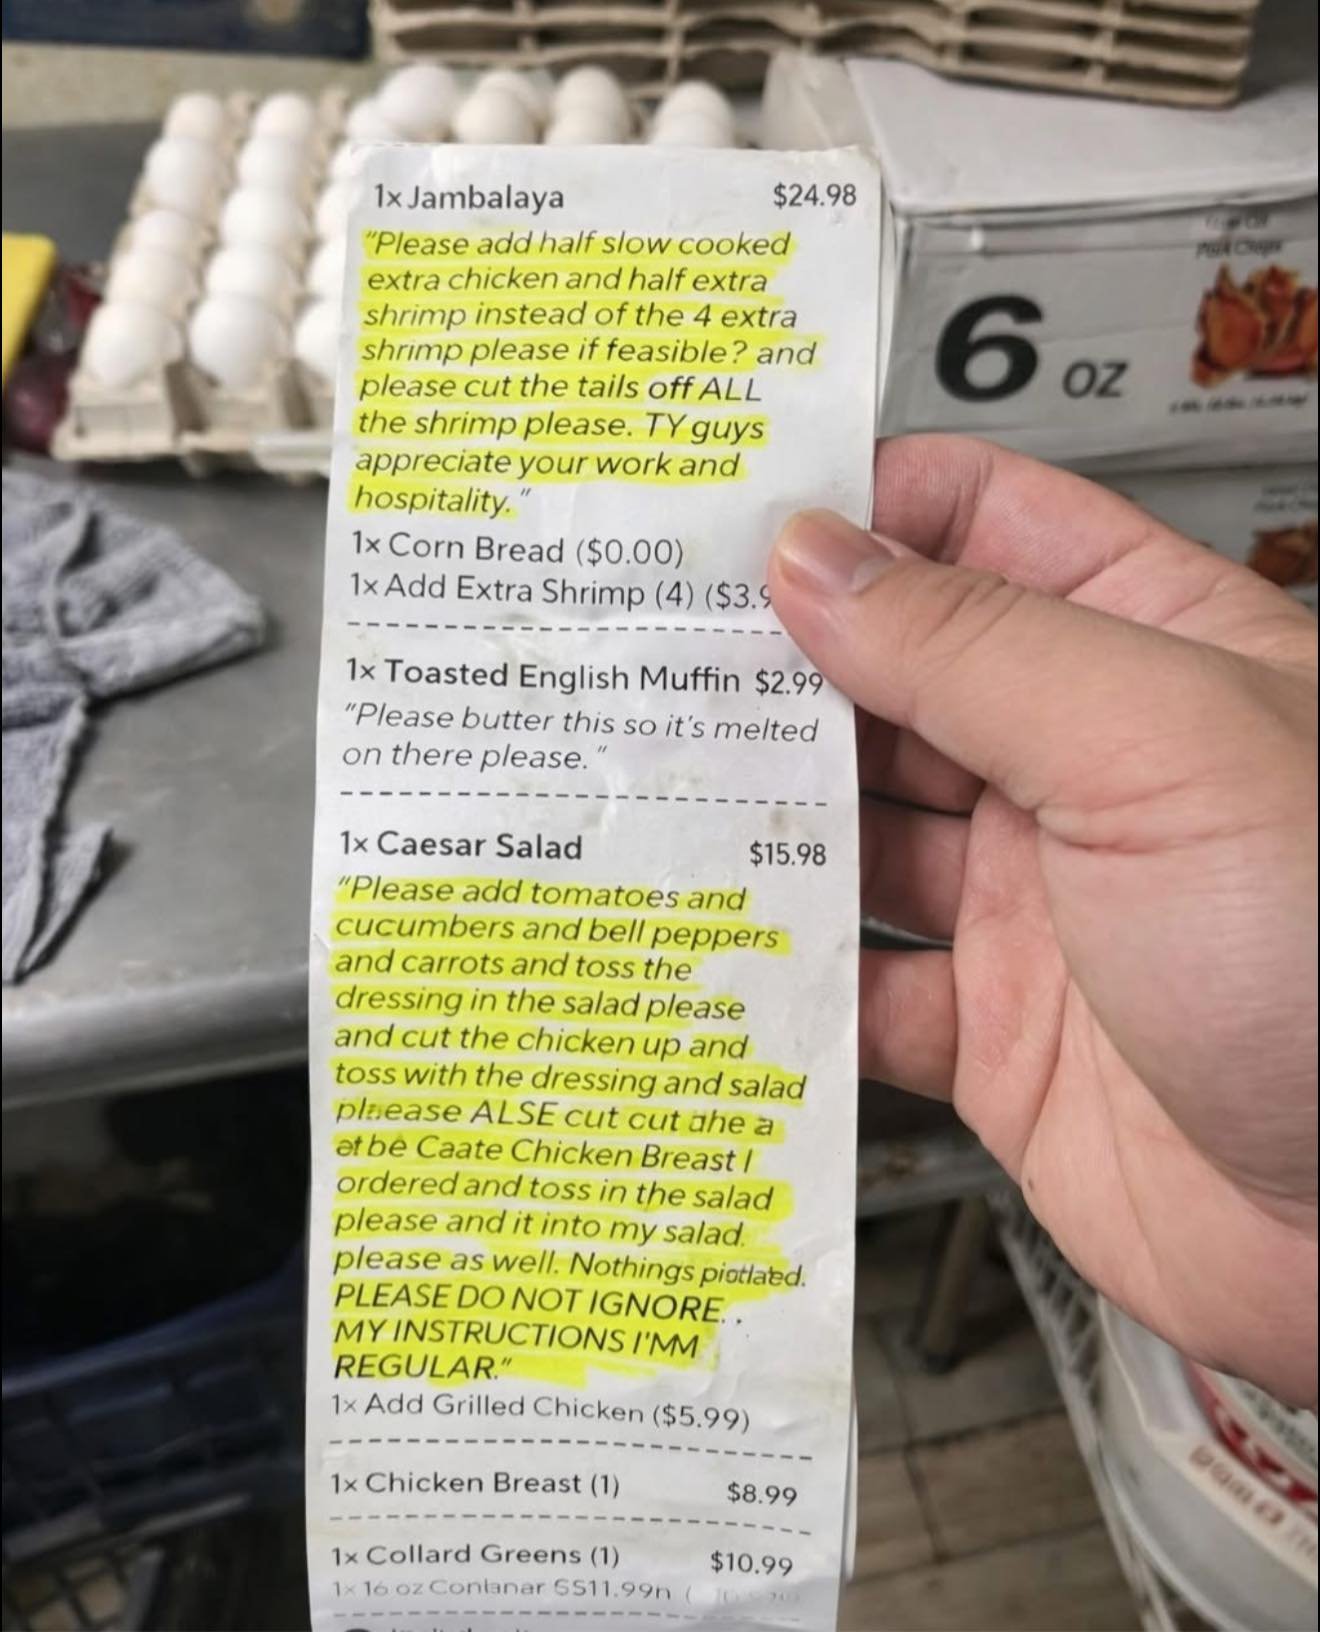 1x Jambalaya $24.98
"Please add half slow cooked
extra chicken and half extra
shrimp instead of the 4 extra
shrimp please if feasible? and
please cut the tails off ALL
the shrimp please. TY guys
appreciate your work and
hospitality."
1x Corn Bread ($0.00)
1x Add Extra Shrimp (4) ($3.9
1x Toasted English Muffin $2.99
"Please butter this so it's melted
on there please."
1x Caesar Salad $15.98
"Please add tomatoes and
cucumbers and bell peppers
and carrots and toss the
dressing in the salad please
and cut the chicken up and
toss with the dressing and salad
ALSE cut cut a
Chicken Breast I
ordered and toss in the salad
please and it into my salad.
please as well. Nothings
PLEASE DO NOT IGNORE. .
MY INSTRUCTIONS I'MM
REGULAR."
1x Add Grilled Chicken ($5.99)
1x Chicken Breast (1) $8.99
1x Collard Greens (1) $10.99
1x 16 oz
6 oz